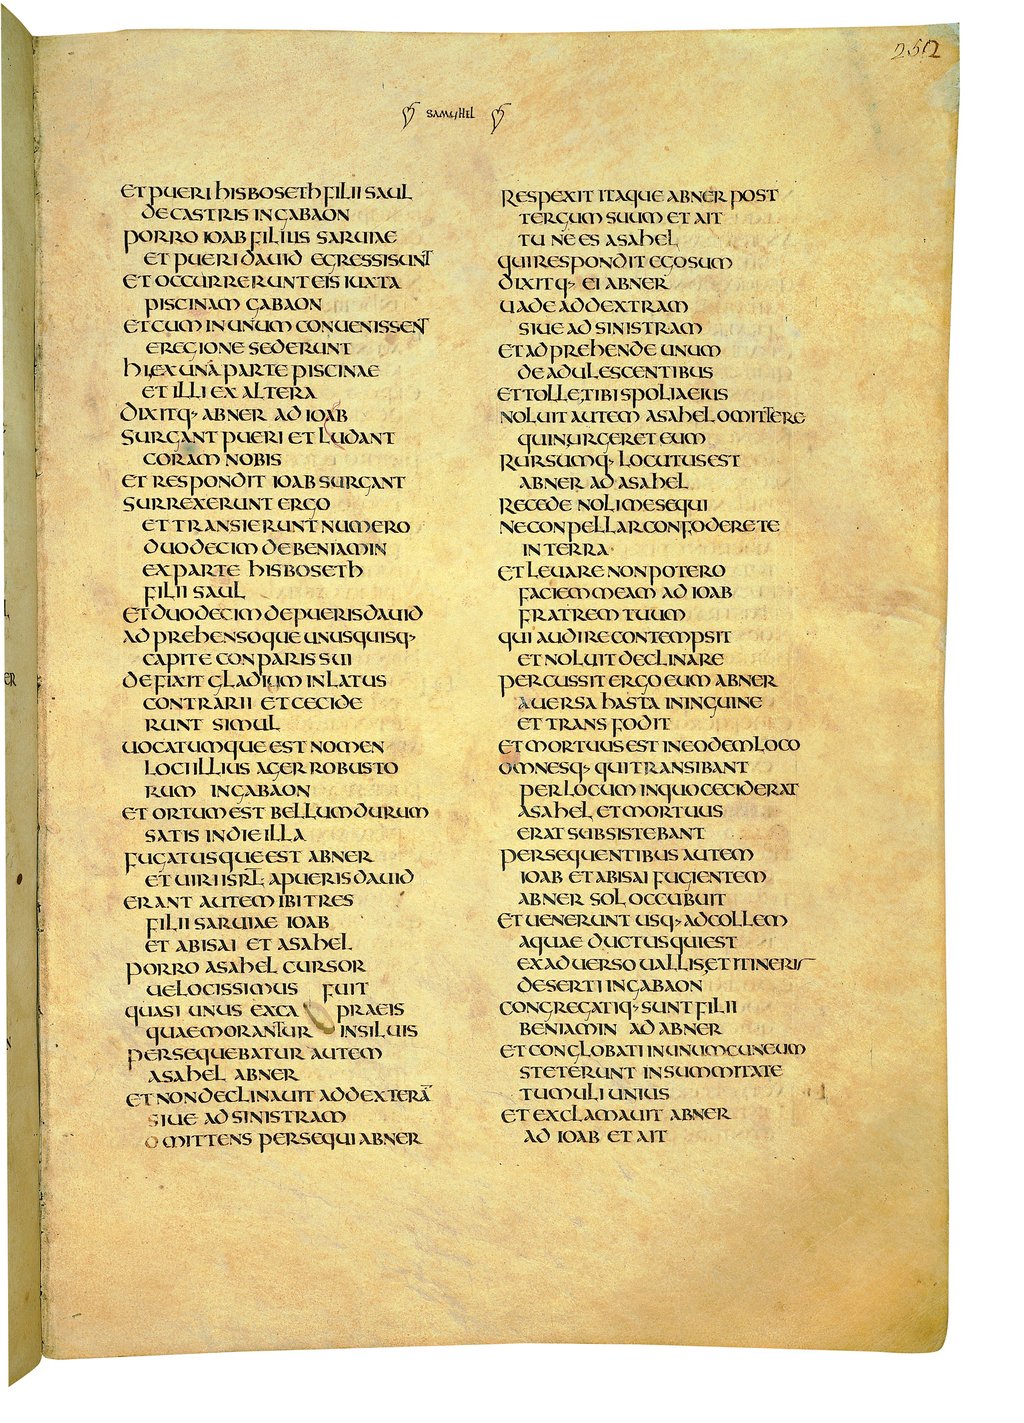 252
SAMUHEL
ET PUERI HISBOSETH FILII SAUL
DE CASTRIS IN GABAON
PORRO IOAB FILIUS SARUIAE
ET PUERI DAUID EGRESSI SUNT
ET OCCURRERUNT EIS IUXTA
PISCINAM GABAON
ET CUM IN UNUM CONUENISSENT
E REGIONE SEDERUNT
HI EX UNA PARTE PISCINAE
ET ILLI EX ALTERA
DIXITQ· ABNER AD IOAB
SURGANT PUERI ET LUDANT
CORAM NOBIS
ET RESPONDIT IOAB SURGANT
SURREXERUNT ERGO
ET TRANSIERUNT NUMERO
DUODECIM DE BENIAMIN
EX PARTE HISBOSETH
FILII SAUL
ET DUODECIM DE PUERIS DAUID
ADPREHENSOQUE UNUSQUISQ·
CAPITE CONPARIS SUI
DEFIXIT GLADIUM IN LATUS
CONTRARII ET CECIDE
RUNT SIMUL
UOCATUMQUE EST NOMEN
LOCI ILLIUS AGER ROBUSTO
RUM IN GABAON
ET ORTUM EST BELLUM DURUM
SATIS IN DIE ILLA
FUGATUSQUE EST ABNER
ET UIRI ISRL A PUERIS DAUID
ERANT AUTEM IBI TRES
FILII SARUIAE IOAB
ET ABISAI ET ASAHEL
PORRO ASAHEL CURSOR
UELOCISSIMUS FUIT
QUASI UNUS EX CAPRAEIS
QUAE MORANTUR IN SILUIS
PERSEQUEBATUR AUTEM
ASAHEL ABNER
ET NON DECLINAUIT AD DEXTERĀ
SIUE AD SINISTRAM
OMITTENS PERSEQUI ABNER
RESPEXIT ITAQUE ABNER POST
TERGUM SUUM ET AIT
TU NE ES ASAHEL
QUI RESPONDIT EGO SUM
DIXITQ· EI ABNER
UADE AD DEXTRAM
SIUE AD SINISTRAM
ET ADPREHENDE UNUM
DE ADULESCENTIBUS
ET TOLLE TIBI SPOLIA EIUS
NOLUIT AUTEM ASAHEL OMITTERE
QUIN URGERET EUM
RURSUMQ· LOCUTUS EST
ABNER AD ASAHEL
RECEDE NOLI ME SEQUI
NE CONPELLAR CONFODERE TE
IN TERRA
ET LEUARE NON POTERO
FACIEM MEAM AD IOAB
FRATREM TUUM
QUI AUDIRE CONTEMPSIT
ET NOLUIT DECLINARE
PERCUSSIT ERGO EUM ABNER
AUERSA HASTA IN INGUINE
ET TRANSFODIT
ET MORTUUS EST IN EODEM LOCO
OMNESQ· QUI TRANSIBANT
PER LOCUM IN QUO CECIDERAT
ASAHEL ET MORTUUS
ERAT SUBSISTEBANT
PERSEQUENTIBUS AUTEM
IOAB ET ABISAI FUGIENTEM
ABNER SOL OCCUBUIT
ET UENERUNT USQ· AD COLLEM
AQUAE DUCTUS QUI EST
EX ADUERSO UALLIS ET ITINERIS
DESERTI IN GABAON
CONGREGATIQ· SUNT FILII
BENIAMIN AD ABNER
ET CONGLOBATI IN UNUM CUNEUM
STETERUNT IN SUMMITATE
TUMULI UNIUS
ET EXCLAMAUIT ABNER
AD IOAB ET AIT